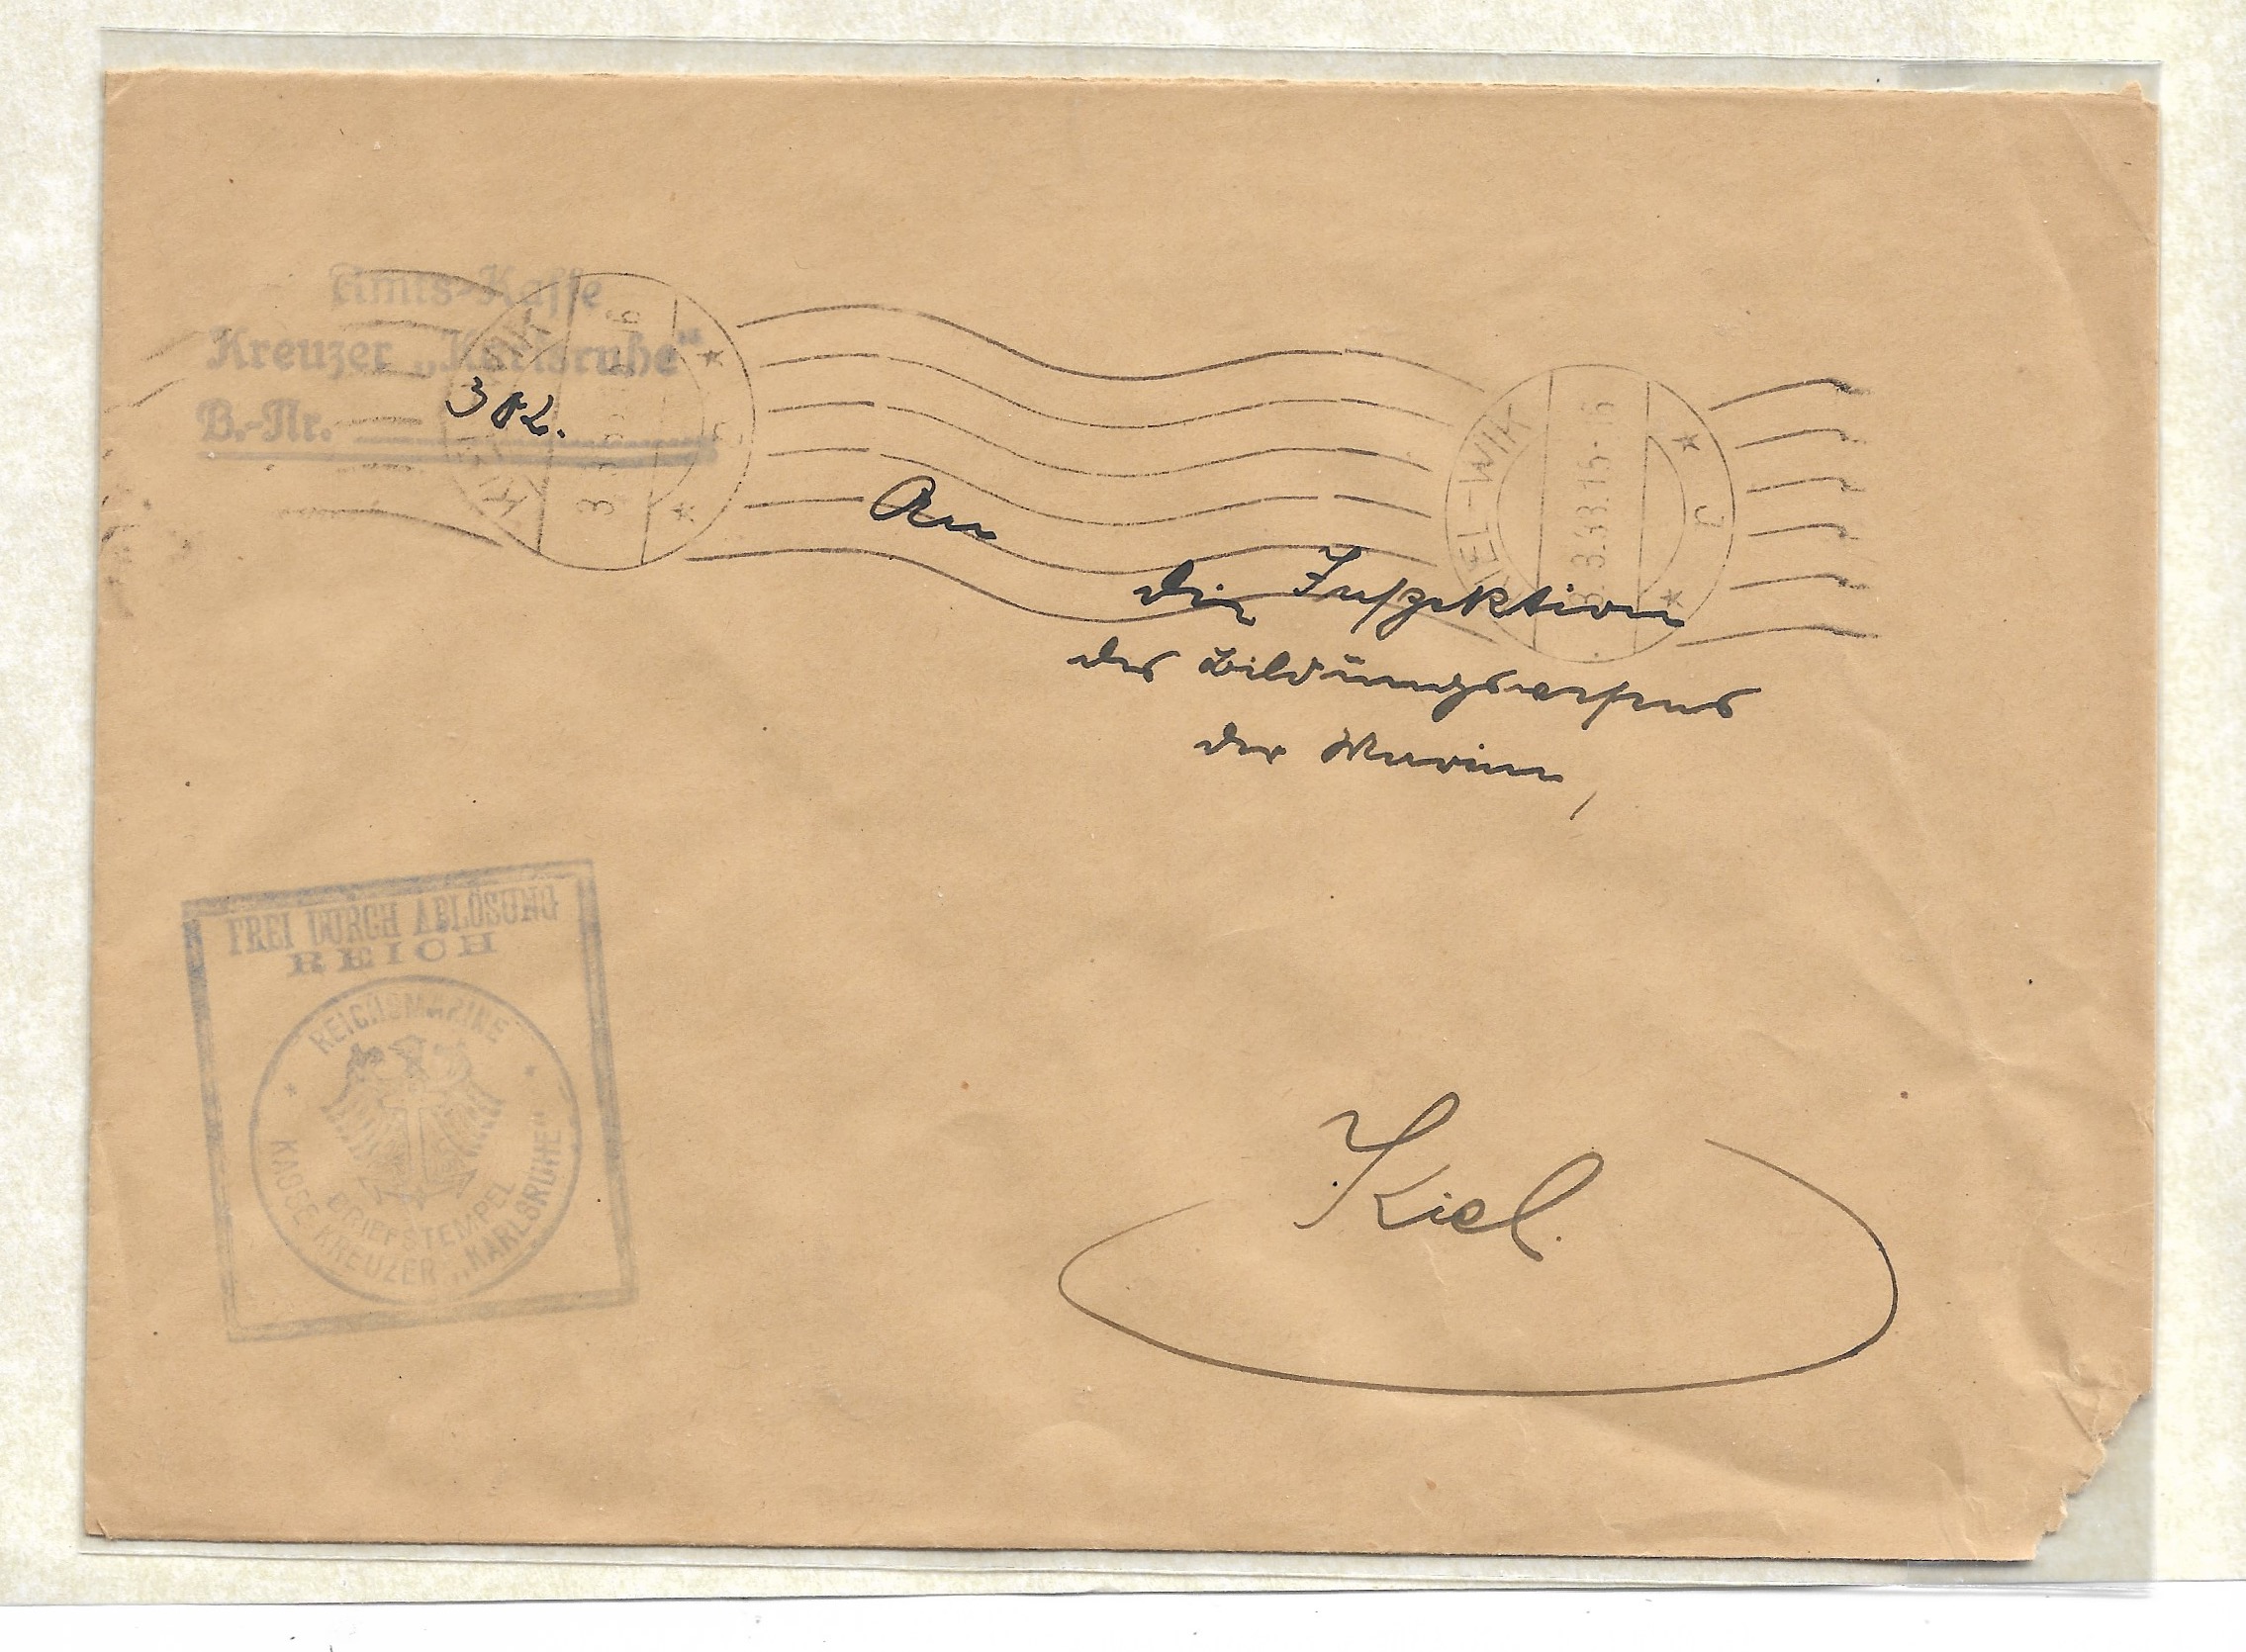 Amts-Kasse
Kreuzer „Karlsruhe"
B.-Nr. 382.
KIEL-WIK
3.3.33.15-16
c
An
die Inspektion
des Bildungswesens
der Marine,
Kiel.
FREI DURCH ABLÖSUNG
REICH
REICHSMARINE
BRIEFSTEMPEL
KASSE KREUZER „KARLSRUHE"